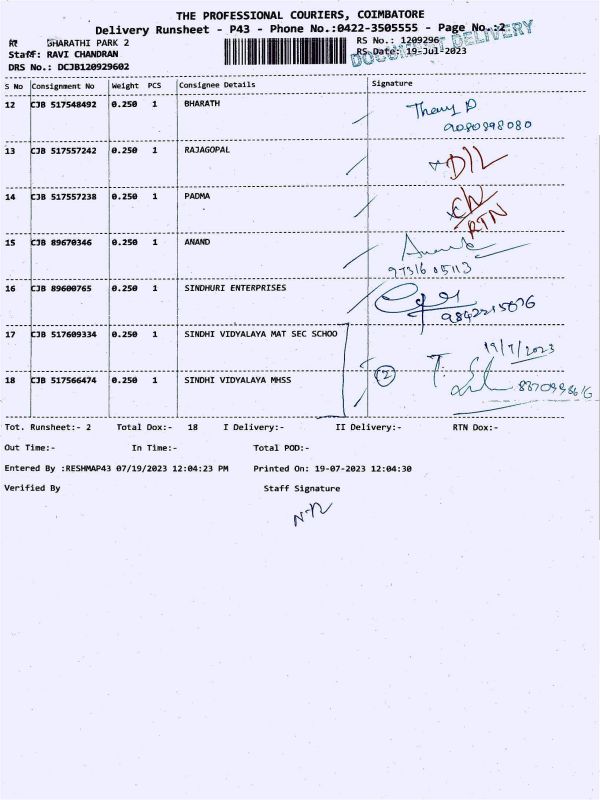 THE PROFESSIONAL COURIERS, COIMBATORE
Delivery Runsheet - P43 - Phone No.:0422-3505555 - Page No.:2
BHARATHI PARK 2
RS No.: 1209296
DOCUMENT DELIVERY
Staff: RAVI CHANDRAN
RS Date: 19-Jul-2023
DRS No.: DCJB120929602
S No Consignment No Weight PCS Consignee Details Signature
12 CJB 517548492 0.250 1 BHARATH
9080898080
13 CJB 517557242 0.250 1 RAJAGOPAL D/L
14 CJB 517557238 0.250 1 PADMA
RTN
15 CJB 89670346 0.250 1 ANAND
97316 05113
16 CJB 89600765 0.250 1 SINDHURI ENTERPRISES
9842215676
17 CJB 517609334 0.250 1 SINDHI VIDYALAYA MAT SEC SCHOO
19/7/2023
18 CJB 517566474 0.250 1 SINDHI VIDYALAYA MHSS 2
Tot. Runsheet:- 2 Total Dox:- 18 I Delivery:- II Delivery:- RTN Dox:-
Out Time:- In Time:- Total POD:-
Entered By :RESHMAP43 07/19/2023 12:04:23 PM Printed On: 19-07-2023 12:04:30
Verified By Staff Signature